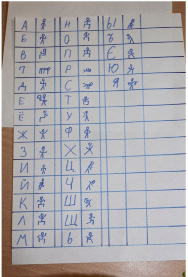 А Н Ы
Б О Ъ
В П Є
Г Р Ю
Д С Я
Е Т
Ё У
Ж Ф
З Х
И Ц
Й Ч
К Ш
Л Щ
М Ь